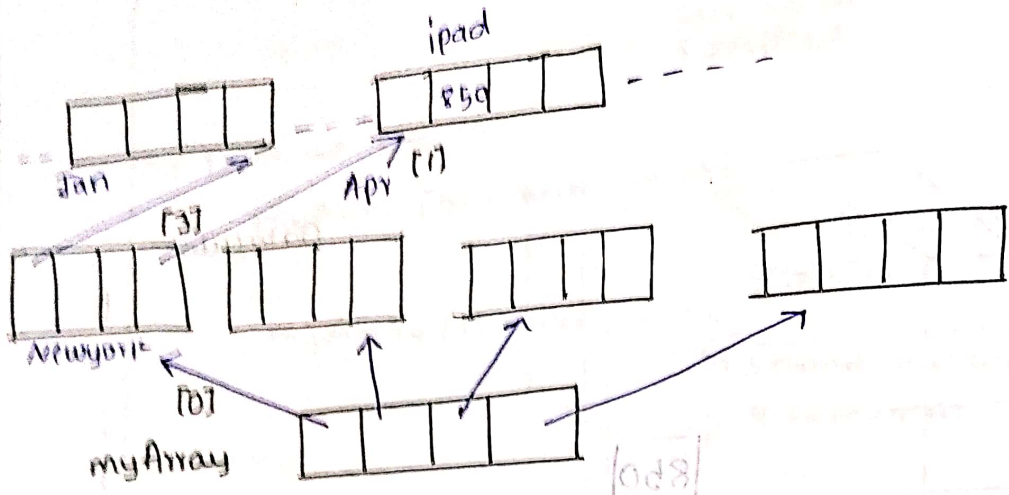 ipad
850
Jan
Apr [1]
[3]
Newyork
[0]
myArray
850